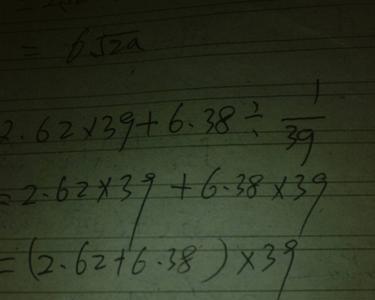 = 6√2a
2.62×39+6.38÷1/39
=2.62×39+6.38×39
=(2.62+6.38)×39